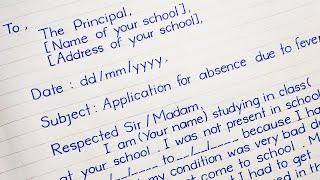 To,
The Principal,
[Name of your school],
[Address of your school],
Date : dd/mm/yyyy.
Subject : Application for absence due to fever
Respected Sir/Madam,
I am (Your name) studying in class(
at your school. I was not present in school
__/__/____ to __/__/____ because I ha
my condition was very bad d
not come to school. M
I had to get
ed in the